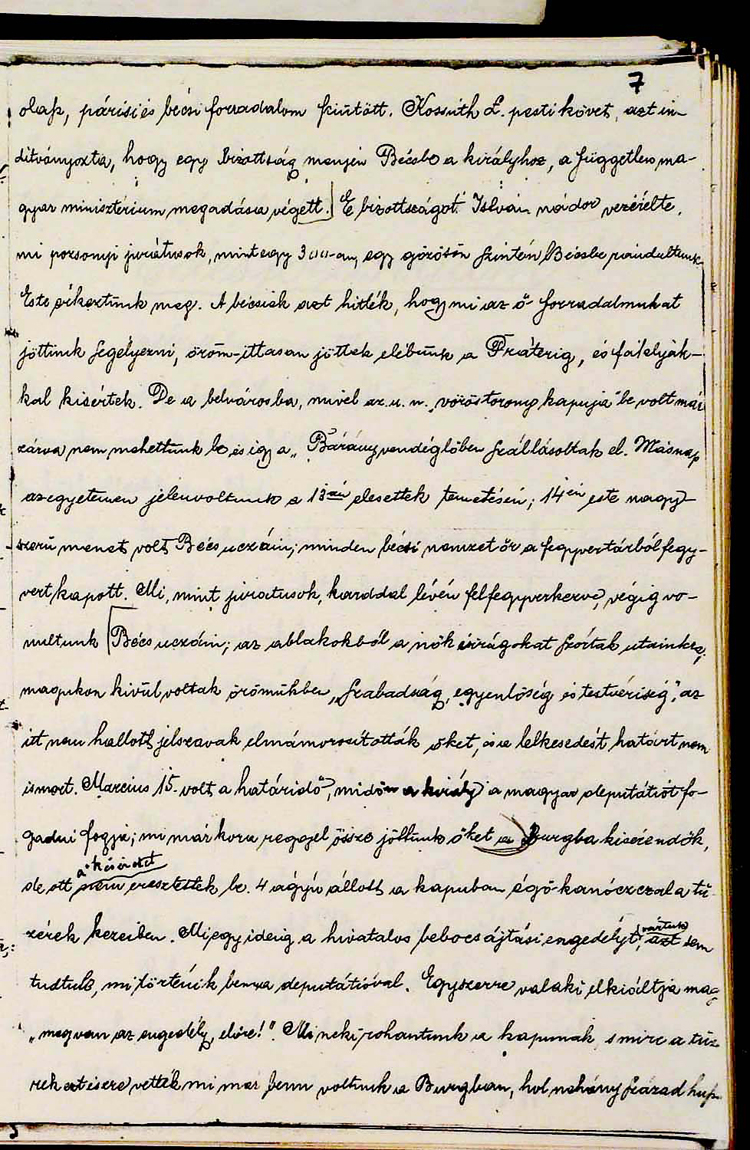 7
olasz, párisi és bécsi forradalom kiütött. Kossuth L. pesti követ, azt in-
ditványozta, hogy egy bizottság menjen Bécsbe a királyhoz, a független ma-
gyar minisztérium megadása végett. E bizottságot István nádor vezérelte,
mi pozsonyi juratusok, mintegy 300-an, egy gőzösön szintén Bécsbe rándultunk
Este érkeztünk meg. A bécsiek azt hitték, hogy mi az ő forradalmukat
jöttünk segélyezni, öröm-ittasan jöttek elébünk a Práterig, és fáklyák-
kal kisértek. De a belvárosba, mivel az u. n. "vöröstorony kapuja" be volt már
zárva nem mehettünk be és igy a "Bárány vendéglőben szállásoltak el. Másnap
az egyetemen jelenvoltunk a 13án elesettek temetésén; 14én este nagy-
szerű menet volt Bécs uczáin; minden bécsi nemzetőr a fegyvertárból fegy-
vert kapott. Mi, mint juratusok, karddal lévén felfegyverkezve, végig vo-
nultunk Bécs uczáin; az ablakokból a nők virágokat szórtak utainkra,
magukon kivül voltak örömükben, "Szabadság, egyenlőség és testvériség", az
itt nem hallott jelszavak elmámorosították őket, és a lelkesedést határt nem
ismert. Március 15. volt a határidő, midőn a király a magyar deputátiót fo-
gadni fogja; mi már kora reggel össze jöttünk őket a Burgba kisérendők,
de ott a kíséretet nem eresztették be. 4 ágyú állott a kapuban égő kanóczczal a tü-
zérek kezeiben. Mi egy ideig a hivatalos bebocsájtási engedélyt vártuk, azt sem
tudtuk, mi történik benn a deputátióval. Egyszerre valaki elkiáltja mag
"megvan az engedély, előre!". Mi neki rohantunk a kapunak, s mire a tüz
rek észére vették mi már fenn voltunk a Burgban, hol néhány század hup